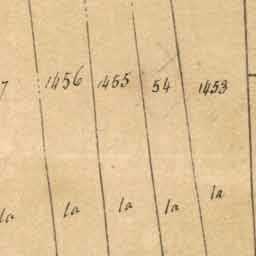 7 1456 1455 54 1453
la la la la la